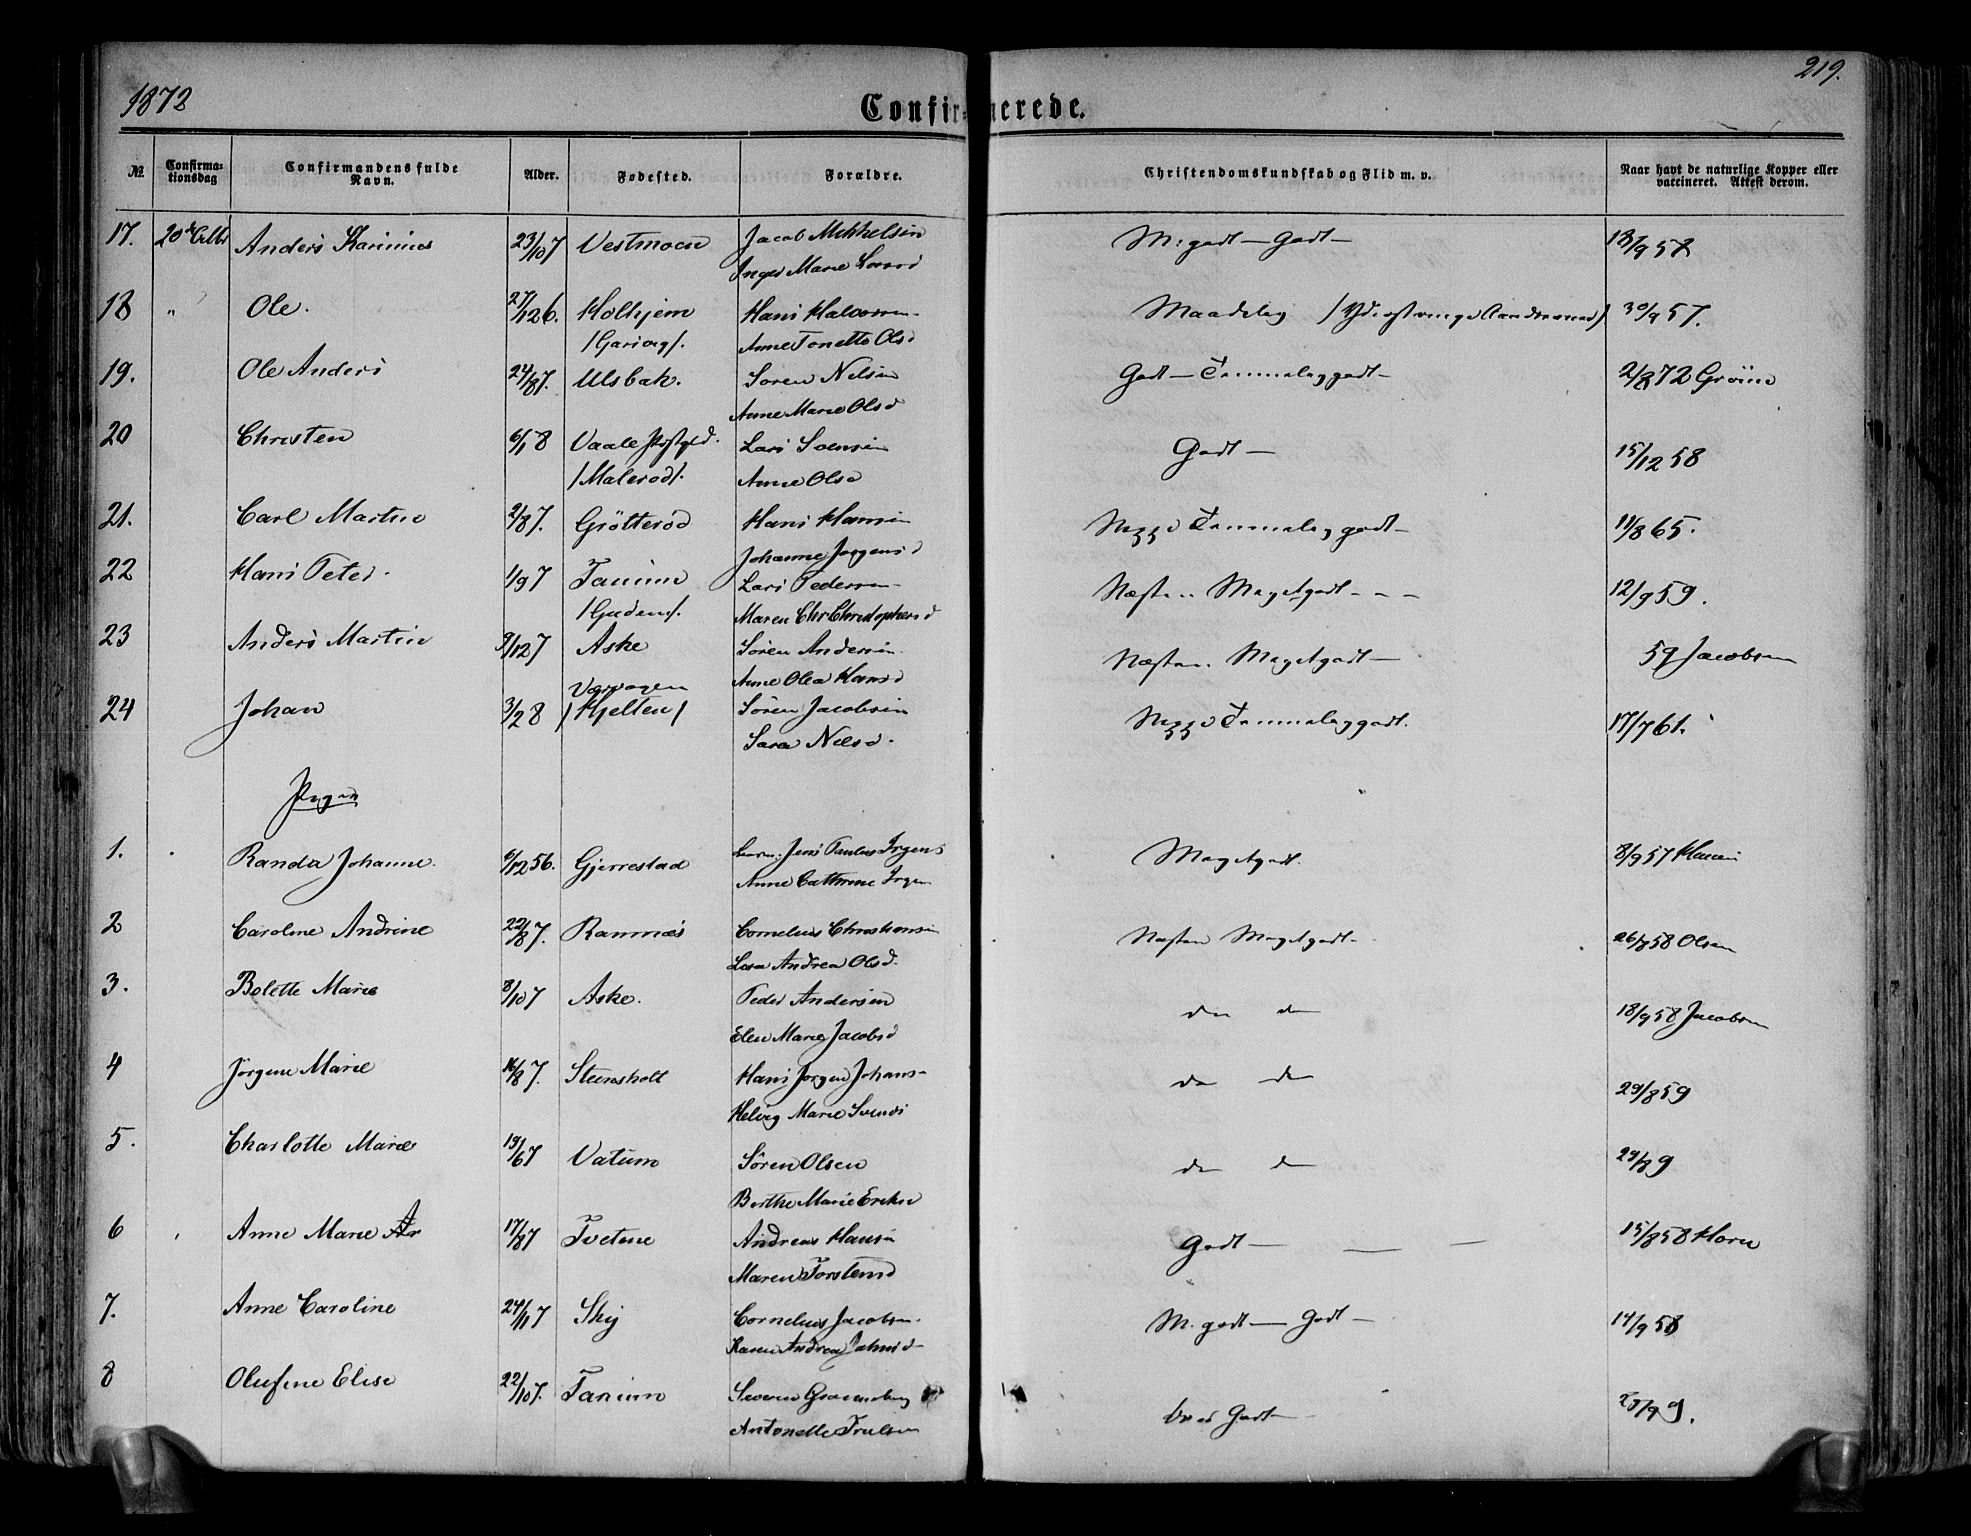 1872
219.
Confirmerede.
№
Confirmationsdag
Confirmandens fulde Navn.
Alder.
Fødested.
Forældre.
Christendomskundskab og Flid m. v.
Naar havt de naturlige Kopper eller vaccineret. Attest derom.
17. 20 Anders Karinius 23/10 7 Vestmoen Jacob Mikkelsen M: godt - Godt - 13/9 58
Inger Marie
18 " Ole. 27/12 6. Holhjem Hans Halvorsen Maadelig 30/9 57.
Anne Tonette Olsd
19. Ole Anders 24/8 7. Ulsbak. Søren Nilsen Godt - Temmelig godt - 2/8 72 Gröne
Anne Marie Olsd
20 Christen 6/1 8 Vaale Søren Godt - 15/12 58
/Malerød/. Anne Olsd
21. Carl Martin 2/8 7. Grötteröd Hans Hansen Temmelig godt - 11/8 65.
Johanne Jørgensd
22 Hans Peter. 1/9 7 Tanum Lars Pedersen Næsten Meget godt - - - 12/9 59.
Maren Chr Christophersd
23 Anders Martin 9/12 7 Aske Sören Andersen. Næsten. Meget godt - 59 Jacobsen
Anne Olea Hansd
24 Johan 3/2 8 /Kjelten/ Sören Jacobsen Temmelig godt. 17/7 61.
Sara Nilsd.
Piger
1. Randa Johanne. 6/12 56. Gjerrestad Jens Paulus Irgens Meget godt. 8/9 57 Hansen
Anne Cathrine Irgens
2 Caroline Andrine 22/8 7. Ramnæs Cornelius Christiansen Næsten Meget godt - 26/8 58 Olsen
Andrea Olsd.
3. Bolette Marie 8/10 7 Aske. Peder Andersen do do 18/9 58 Jacobsen
Elen Marie Jacobsd
4 Jörgine Marie 16/8 7. Steensholt Hans Jørgen Johans- do do 29/8 59
Helvig Marie
5. Charlotte Marie 19/6 7 Vatum Sören Olsen do do 29/8 9
Berthe Marie
6 Anne Marie 17/8 7 Tvetene Andreas Hansen Godt - 15/8 58 Horn
Maren Torstensd
7. Anne Caroline 24/11 7 Skij Cornelius Jacobsen. M. godt - Godt - 14/9 58
Karen Andrea
8 Olufine Elise 22/10 7. Tanum Severin Godt -
Antonette Trulsen